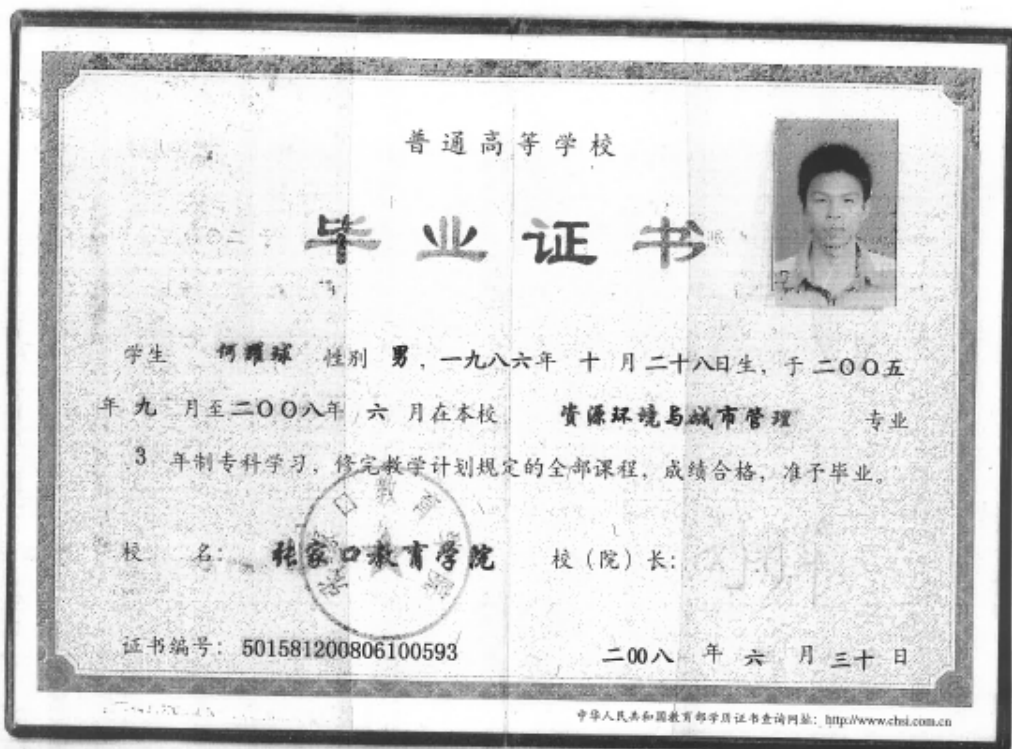 普通高等学校
毕业证书
学生 何耀球 性别 男，一九八六年 十 月 二十八日生，于 二〇〇五
年 九 月至 二〇〇八年 六 月在本校 资源环境与城市管理 专业
3 年制专科学习，修完教学计划规定的全部课程，成绩合格，准予毕业。
校 名： 张家口教育学院 校（院）长：
证书编号： 501581200806100593 二00八 年 六 月 三十 日
中华人民共和国教育部学历证书查询网址：http://www.chsi.com.cn